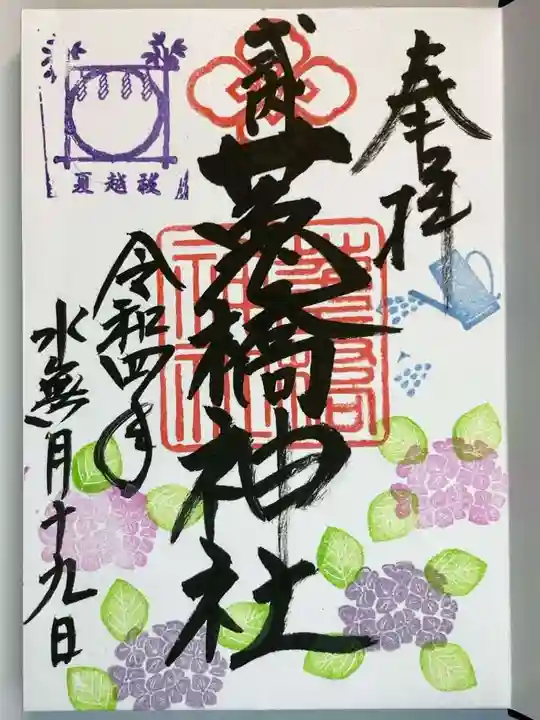 奉拝
式内
菟橋神社
令和四年
水無月十九日
夏越祓